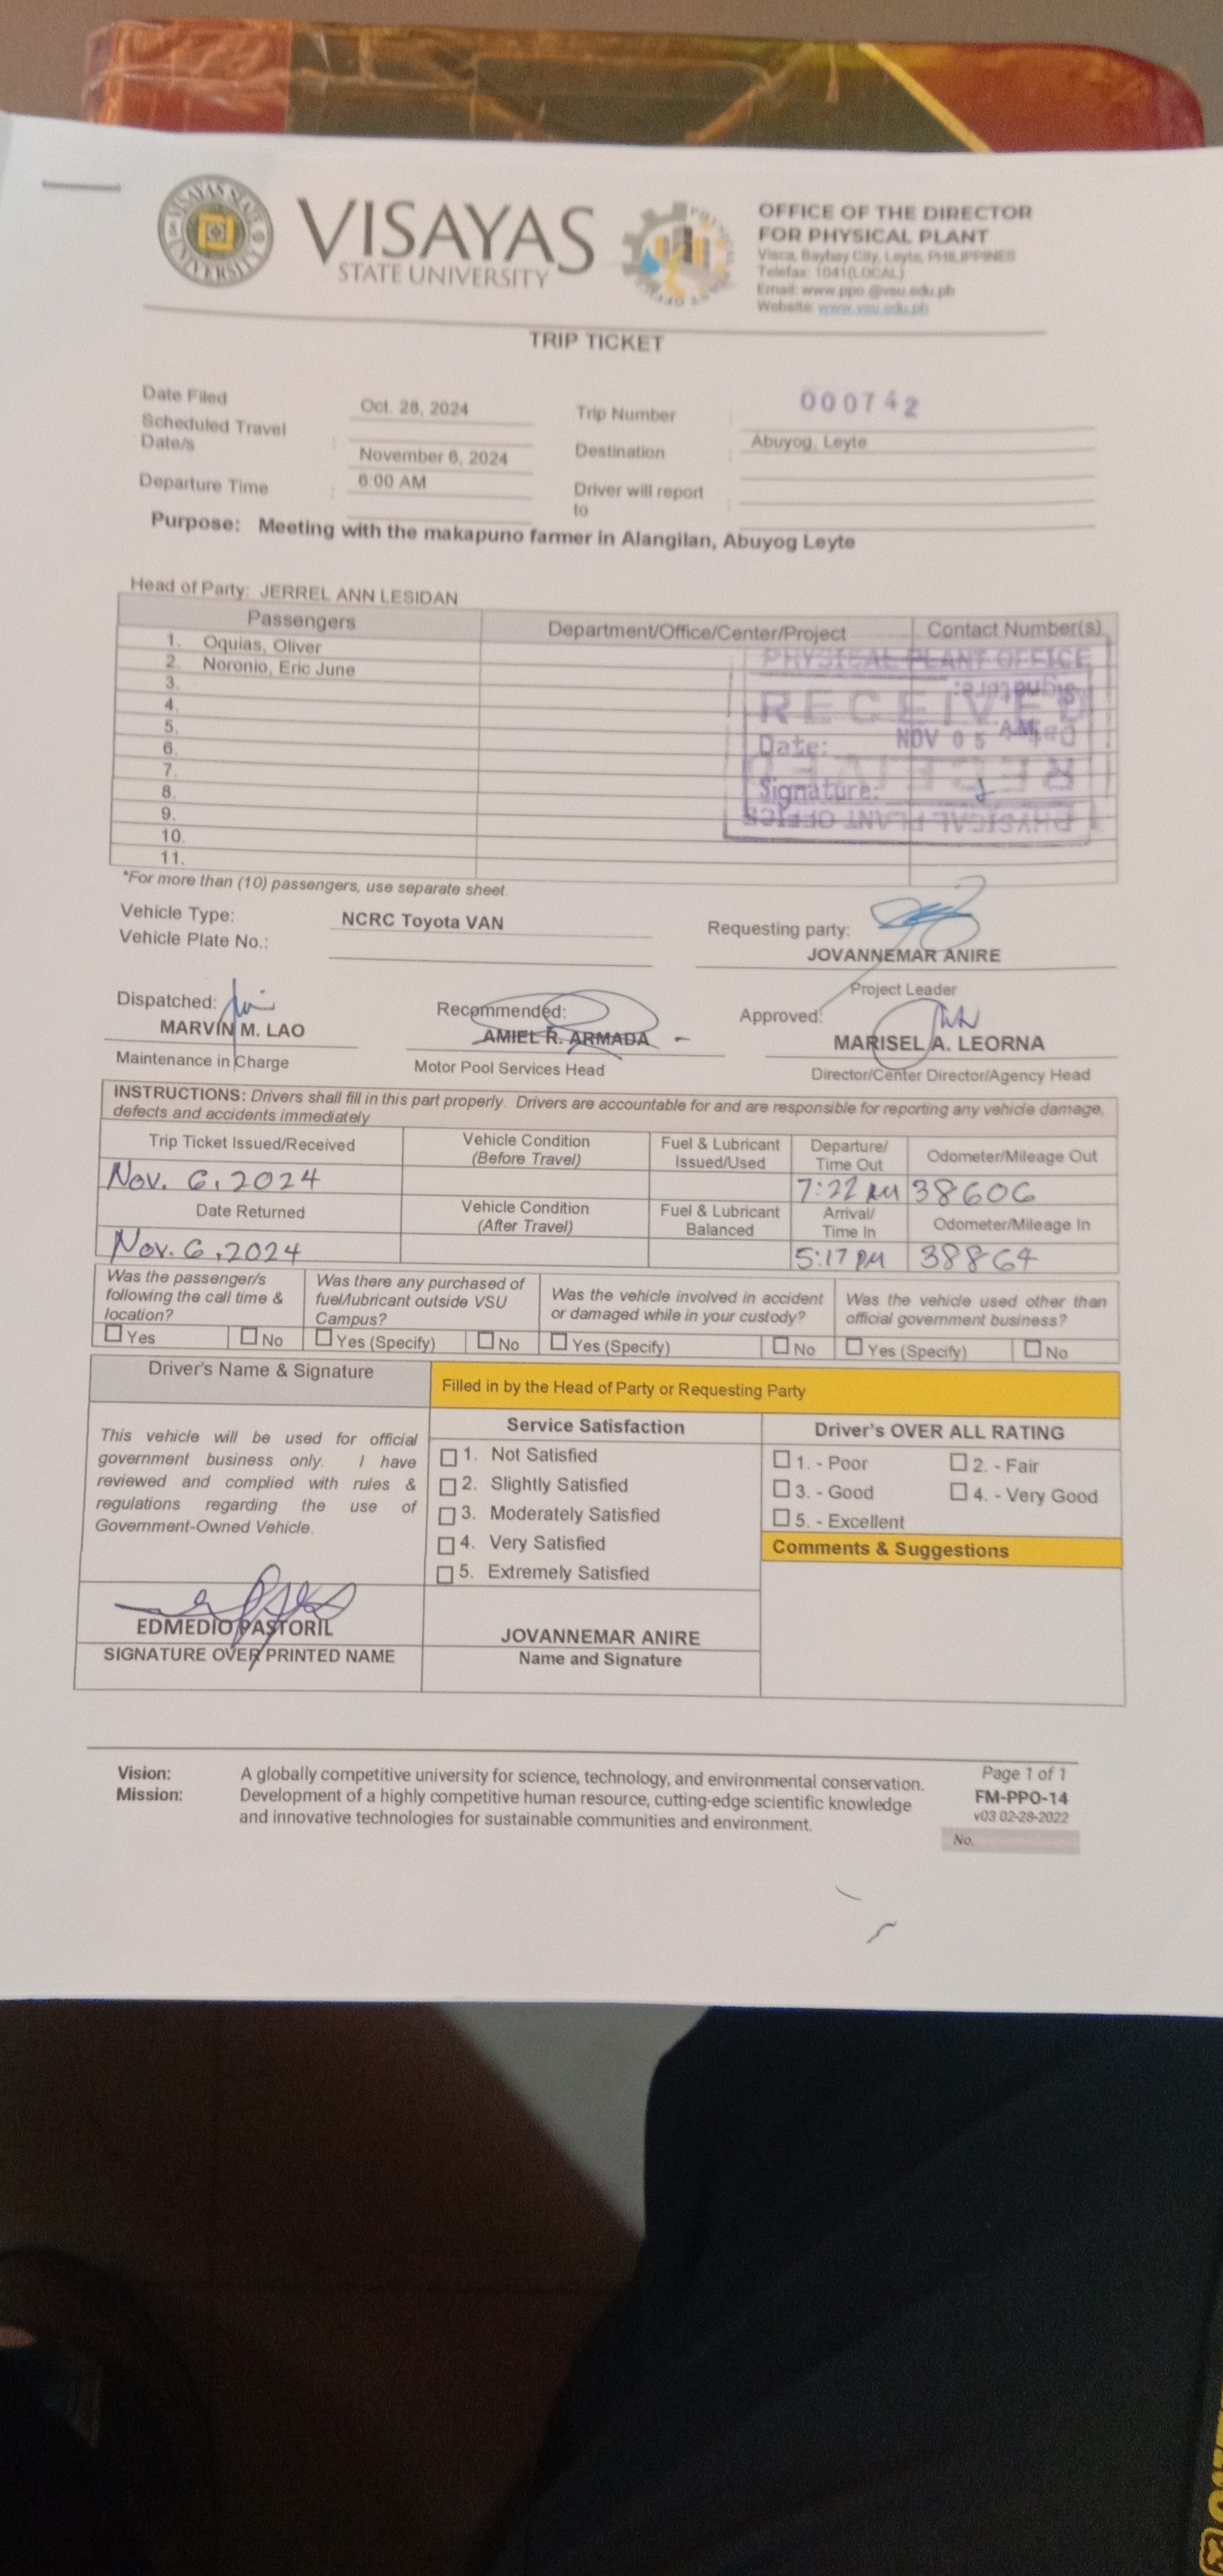 VISAYAS
STATE UNIVERSITY
OFFICE OF THE DIRECTOR
FOR PHYSICAL PLANT
Visca, Baybay City, Leyte, PHILIPPINES
Telefax: 1041(LOCAL)
Email: www.ppo.@vsu.edu.ph
Website: www.vsu.edu.ph
TRIP TICKET
Date Filed Oct. 28, 2024 Trip Number : 000742
Scheduled Travel Date/s : November 6, 2024 Destination : Abuyog, Leyte
Departure Time : 6:00 AM Driver will report to :
Purpose: Meeting with the makapuno farmer in Alangilan, Abuyog Leyte
Head of Party: JERREL ANN LESIDAN
Passengers Department/Office/Center/Project Contact Number(s)
1. Oquias, Oliver
2. Noronio, Eric June
3.
4.
5.
6.
7.
8.
9.
10.
11.
PHYSICAL PLANT OFFICE
RECEIVED
Date: NOV 05
Signature:
*For more than (10) passengers, use separate sheet.
Vehicle Type: NCRC Toyota VAN
Vehicle Plate No.:
Requesting party:
JOVANNEMAR ANIRE
Project Leader
Dispatched: Recommended: Approved:
MARVIN M. LAO AMIEL R. ARMADA MARISEL A. LEORNA
Maintenance in Charge Motor Pool Services Head Director/Center Director/Agency Head
INSTRUCTIONS: Drivers shall fill in this part properly. Drivers are accountable for and are responsible for reporting any vehicle damage,
defects and accidents immediately
Trip Ticket Issued/Received Vehicle Condition (Before Travel) Fuel & Lubricant Issued/Used Departure/ Time Out Odometer/Mileage Out
Nov. 6, 2024 7:22 AM 38606
Date Returned Vehicle Condition (After Travel) Fuel & Lubricant Balanced Arrival/ Time In Odometer/Mileage In
Nov. 6, 2024 5:17 PM 38864
Was the passenger/s following the call time & location? Was there any purchased of fuel/lubricant outside VSU Campus? Was the vehicle involved in accident or damaged while in your custody? Was the vehicle used other than official government business?
Yes No Yes (Specify) No Yes (Specify) No Yes (Specify) No
Driver's Name & Signature Filled in by the Head of Party or Requesting Party
This vehicle will be used for official
government business only. I have
reviewed and complied with rules &
regulations regarding the use of
Government-Owned Vehicle.
Service Satisfaction
1. Not Satisfied
2. Slightly Satisfied
3. Moderately Satisfied
4. Very Satisfied
5. Extremely Satisfied
Driver's OVER ALL RATING
1. - Poor 2. - Fair
3. - Good 4. - Very Good
5. - Excellent
Comments & Suggestions
EDMEDIO PASTORIL JOVANNEMAR ANIRE
SIGNATURE OVER PRINTED NAME Name and Signature
Vision: A globally competitive university for science, technology, and environmental conservation.
Mission: Development of a highly competitive human resource, cutting-edge scientific knowledge
and innovative technologies for sustainable communities and environment.
Page 1 of 1
FM-PPO-14
v03 02-28-2022
No.